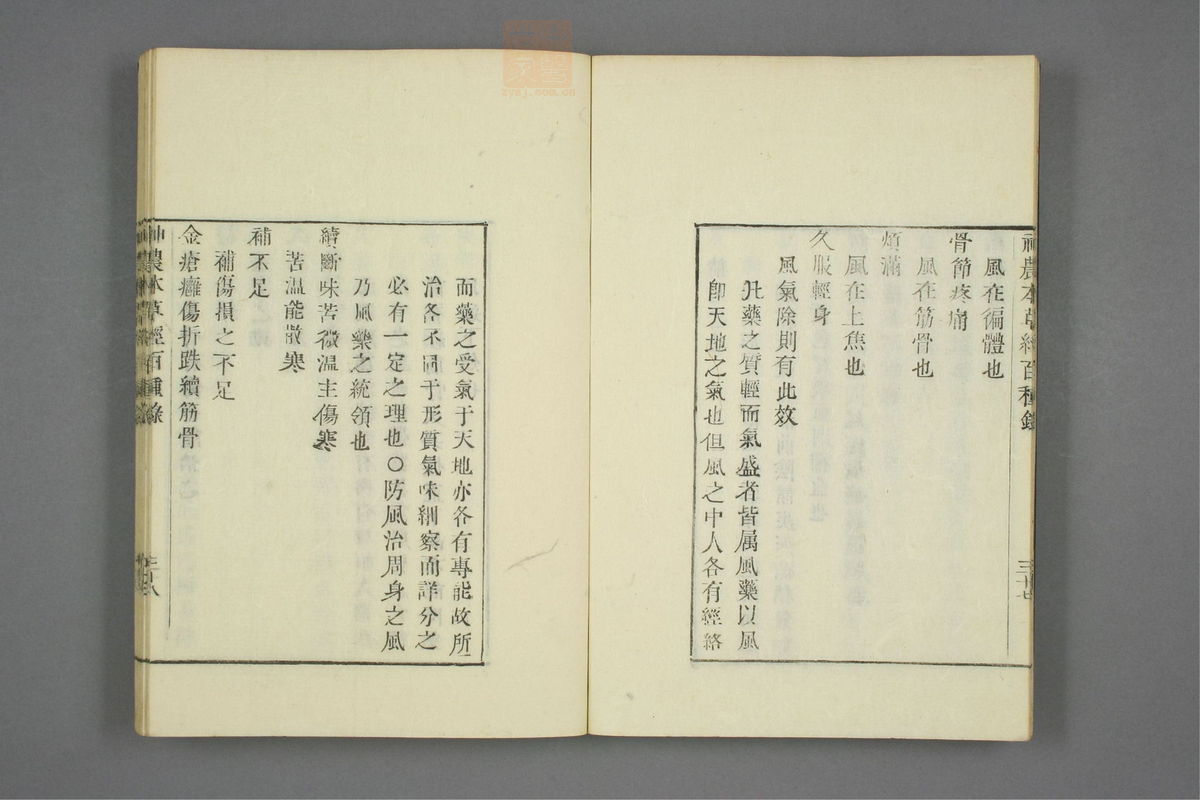 神農本草經百種錄
三十七
風在徧體也
骨節疼痛
風在筋骨也
煩滿
風在上焦也
久服輕身
風氣除則有此效
凡藥之質輕而氣盛者皆屬風藥以風
卽天地之氣也但風之中人各有經絡
而藥之受氣于天地亦各有專能故所
治各不同于形質氣味細察而詳分之
必有一定之理也○防風治周身之風
乃風藥之統領也
續斷味苦微溫主傷寒
苦溫能散寒
補不足
補傷損之不足
金瘡癰傷折跌續筋骨
神農本草經百種錄
三十八
zysj.com.cn